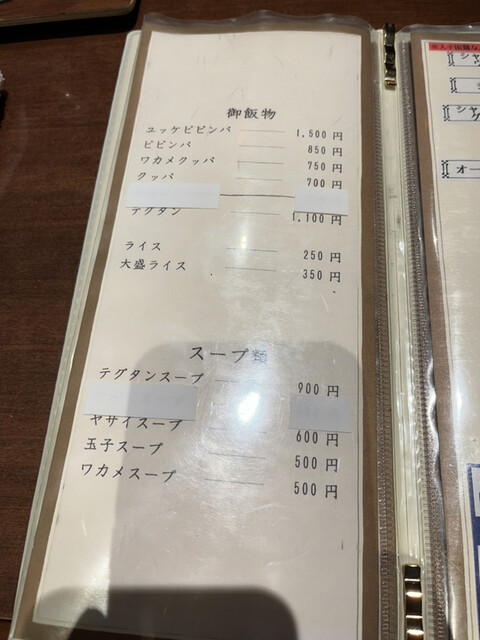 御飯物
ユッケビビンバ 1,500円
ビビンバ 850円
ワカメクッパ 750円
クッパ 700円
テグタン 1,100円
ライス 250円
大盛ライス 350円
スープ類
テグタンスープ 900円
ヤサイスープ 600円
玉子スープ 500円
ワカメスープ 500円
シャ
オー